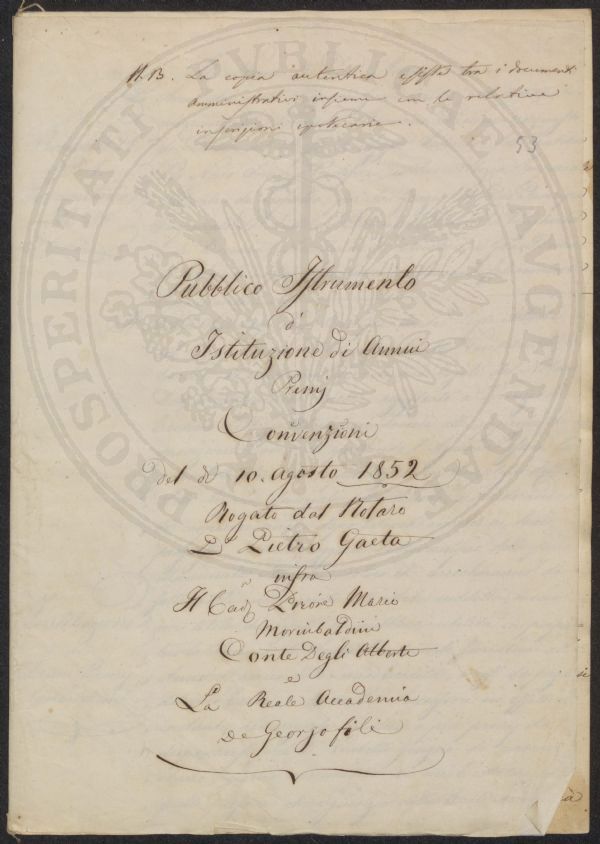 N.B. La copia autentica esiste tra i documenti
amministrativi insieme con le relative
inscrizioni ipotecarie.
53
PROSPERITATI PVBLICAE AVGENDAE
Pubblico Istrumento
d'
Istituzione di Annui
Premj
Convenzioni
del dì 10. Agosto 1852
Rogato dal Notaro
D Pietro Gaeta
infra
Il
Conte Degli Alberti
e
La Reale Accademia
de Georgofili